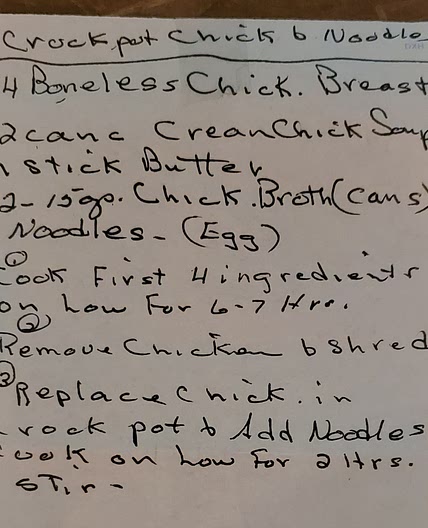 Crockpot Chick & Noodle
4 Boneless Chick. Breast
2 canc CreanChick Soup
1 stick Butter
2-15go. Chick.Broth(cans)
Noodles- (Egg)
①
Cook First 4 ingredients
on how For 6-7 Hrs.
②
Remove Chicken & Shred
③
Replace Chick. in
crock pot & Add Noodles
Cook on how For 2 Hrs.
STir-